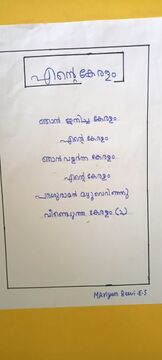 എന്റെ കേരളം
ഞാൻ ജനിച്ച കേരളം
എന്റെ കേരളം
ഞാൻ വളർന്ന കേരളം
എന്റെ കേരളം
പരശുരാമൻ മഴുവെറിഞ്ഞു
വീണ്ടെടുത്ത കേരളം (2)
Mariyam Beevi.E.S